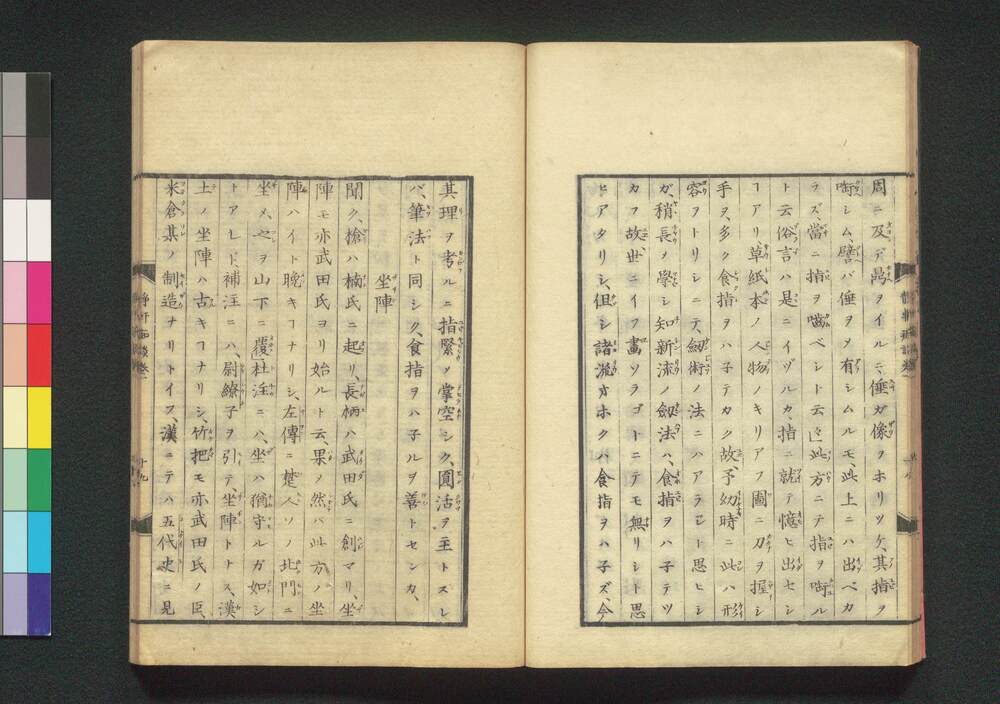 周ニ及デ鼎ヲイルニ、倕ガ像ヲホリツケ、其指ヲ
囓シム、譬バ倕ヲメ有シムルモ、此上ニハ出ベカ
ラズ、當ニ指ヲ囓ベシト云々」此方ニテ指ヲ囓ル
ト云俗言ハ是ニイヅルカ、指ニ就テ憶ヒ出セシ
ヿアリ、草紙本ノ人物ノキリアフ圖ニ刀ヲ握シ
手ヲ、多ク食指ヲハ子テカク、故予幼時ニ此ハ形
容ヲトリシニテ、劔術ノ法ニハアラジト思ヒシ
ガ、稍長メ學シ知新流ノ劔法ハ、食指ヲハ子テツ
カフ、故世ニイフ畫ソラゴトニテモ無リシト思
ヒアタリシ、但シ諸流オホクハ食指ヲハ子ズ、今
其理ヲ考ルニ、指緊メ掌空シク、圓活ヲ主トスレ
バ、筆法ト同シク、食指ヲハ子ルヲ善トセンカ、
坐陣
聞ク、槍ハ楠氏ニ起リ、長柄ハ武田氏ニ創マリ、坐
陣モ亦武田氏ヨリ始ルト云、果メ然バ此方ノ坐
陣ハイト晩キヿナリシ、左傳ニ楚人ソノ北門ニ
坐メ、之ヲ山下ニ覆」杜注ニハ、坐ハ猶守ルガ如シ
トアレド、補注ニハ、尉繚子ヲ引テ、坐陣トス、漢
土ノ坐陣ハ古キヿナリシ、竹把モ亦武田氏ノ臣、
米倉某ノ制造ナリトイフ、漢ニテハ五代史ニ見
十九